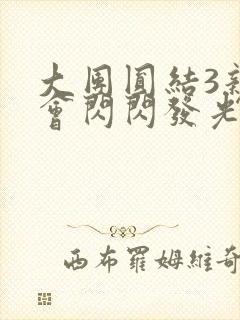 大團圓結3
會閃閃發光
西布羅姆維奇